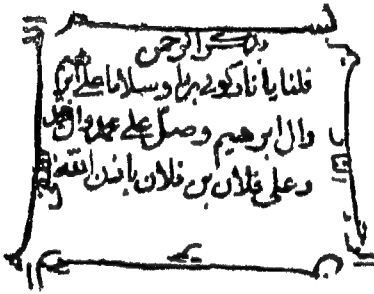 الرحمن
قلنا يا نار كوني بردا وسلاما على ابرهيم
وال ابرهيم وصل على محمد وال محمد
وعلى فلان بن فلان باذن الله